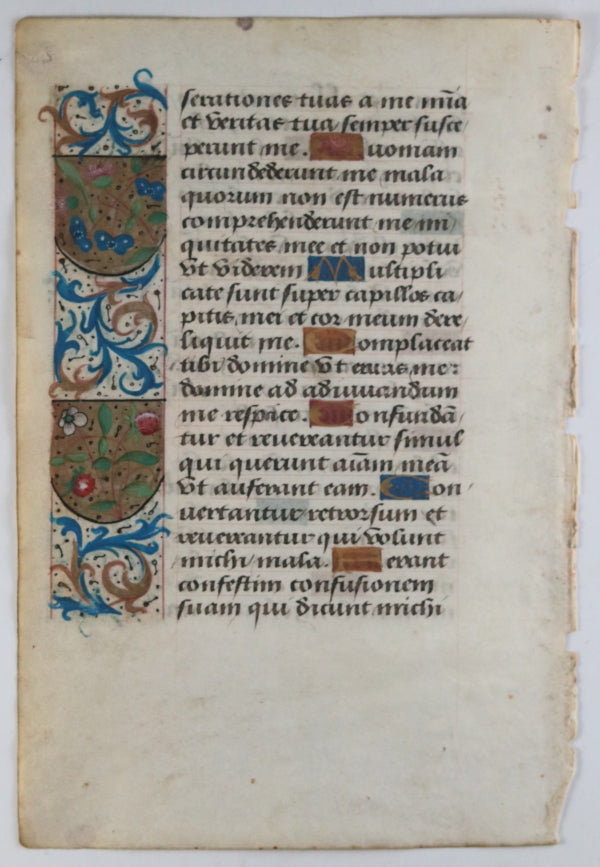 serationes tuas a me mīa
et veritas tua semper susce/
perunt me. Quoniam
circundederunt me mala
quorum non est numerus
comprehenderunt me ini/
quitates mee et non potui
vt viderem Multipli
cate sunt super capillos ca/
pitis mei et cor meum dere/
liquit me. Complaceat
tibi domine vt eruas me:
domine ad adiuuandum
me respice. Confundā/
tur et reuereantur simul
qui querunt aīam meā
vt auferant eam. Con/
uertantur retrorsum et
reuereantur qui volunt
michi mala. Ferant
confestim confusionem
suam qui dicunt michi